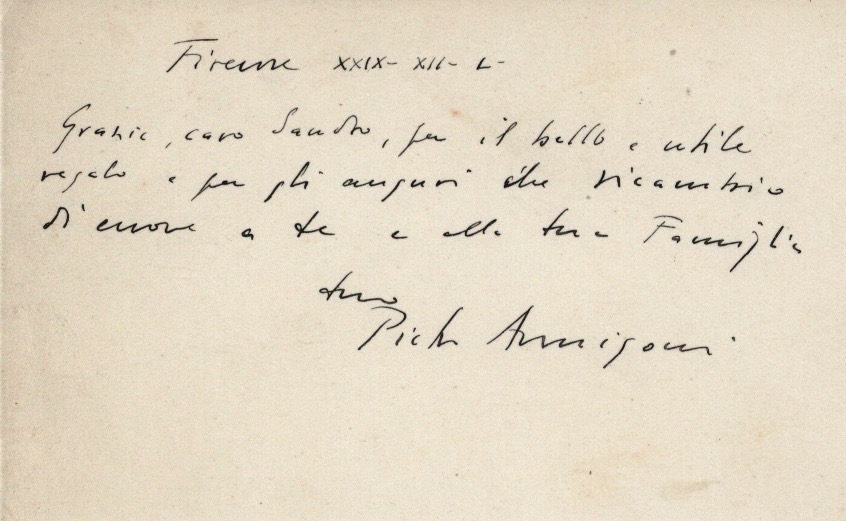 Firenze XXIX - XII - L -
Grazie, caro Sandro, per il bello e utile
regalo e per gli auguri che ricambio
di cuore a te e alla tua Famiglia
tuo
Pietro Annigoni